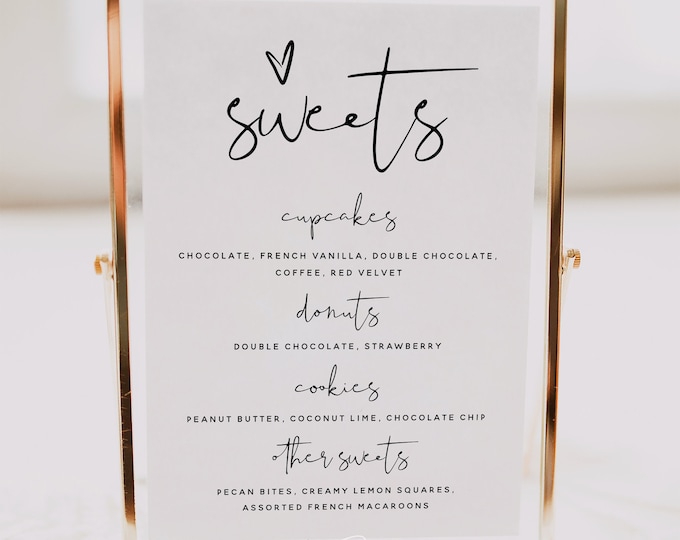 sweets
cupcakes
CHOCOLATE, FRENCH VANILLA, DOUBLE CHOCOLATE,
COFFEE, RED VELVET
donuts
DOUBLE CHOCOLATE, STRAWBERRY
cookies
PEANUT BUTTER, COCONUT LIME, CHOCOLATE CHIP
other sweets
PECAN BITES, CREAMY LEMON SQUARES,
ASSORTED FRENCH MACAROONS